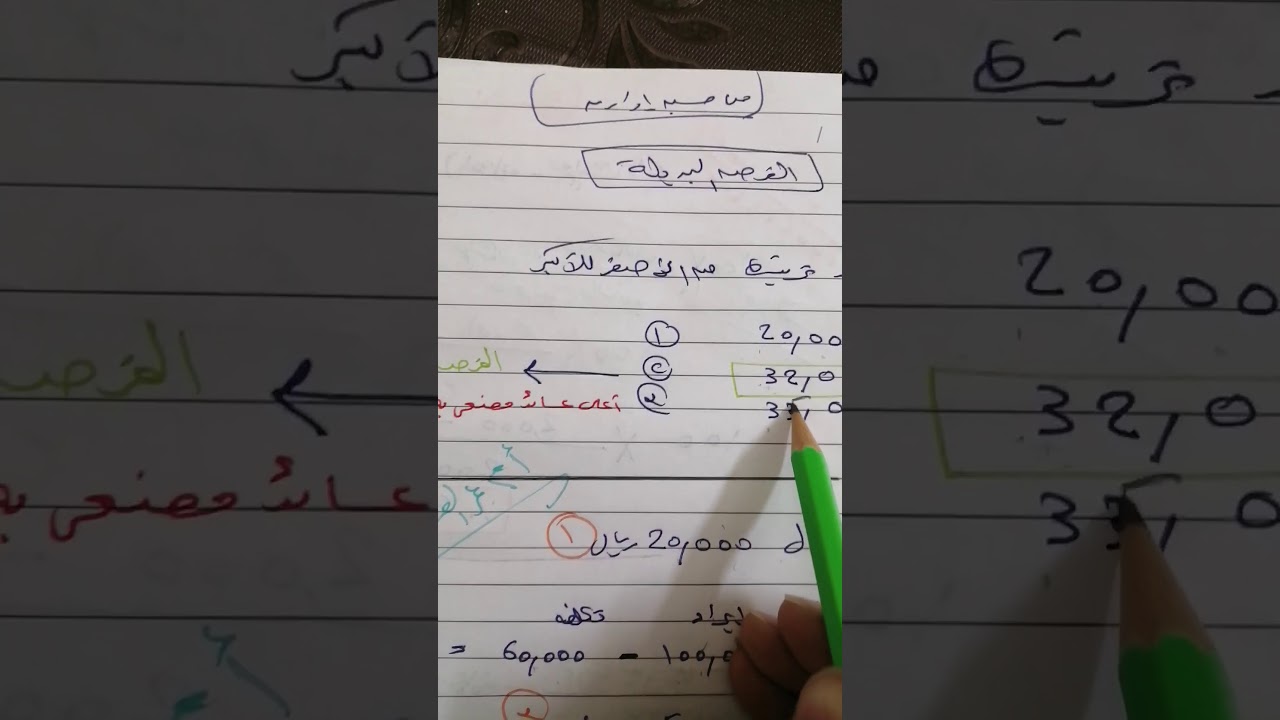 محاسبه إداريه
الفرصه البديلة
- ترتيبها من الأصغر للأكبر
20,00 ①
32,0 ② ← الفرص
35,0 ③ أعلى عائد مصنعي
20,000 ريال ①
إيراد تكلفه
100,0 - 60,000 =